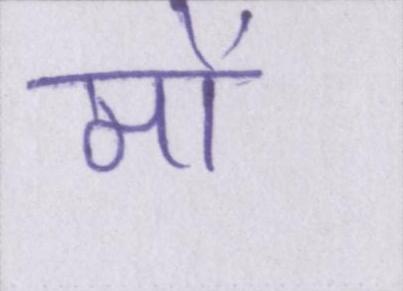 मों